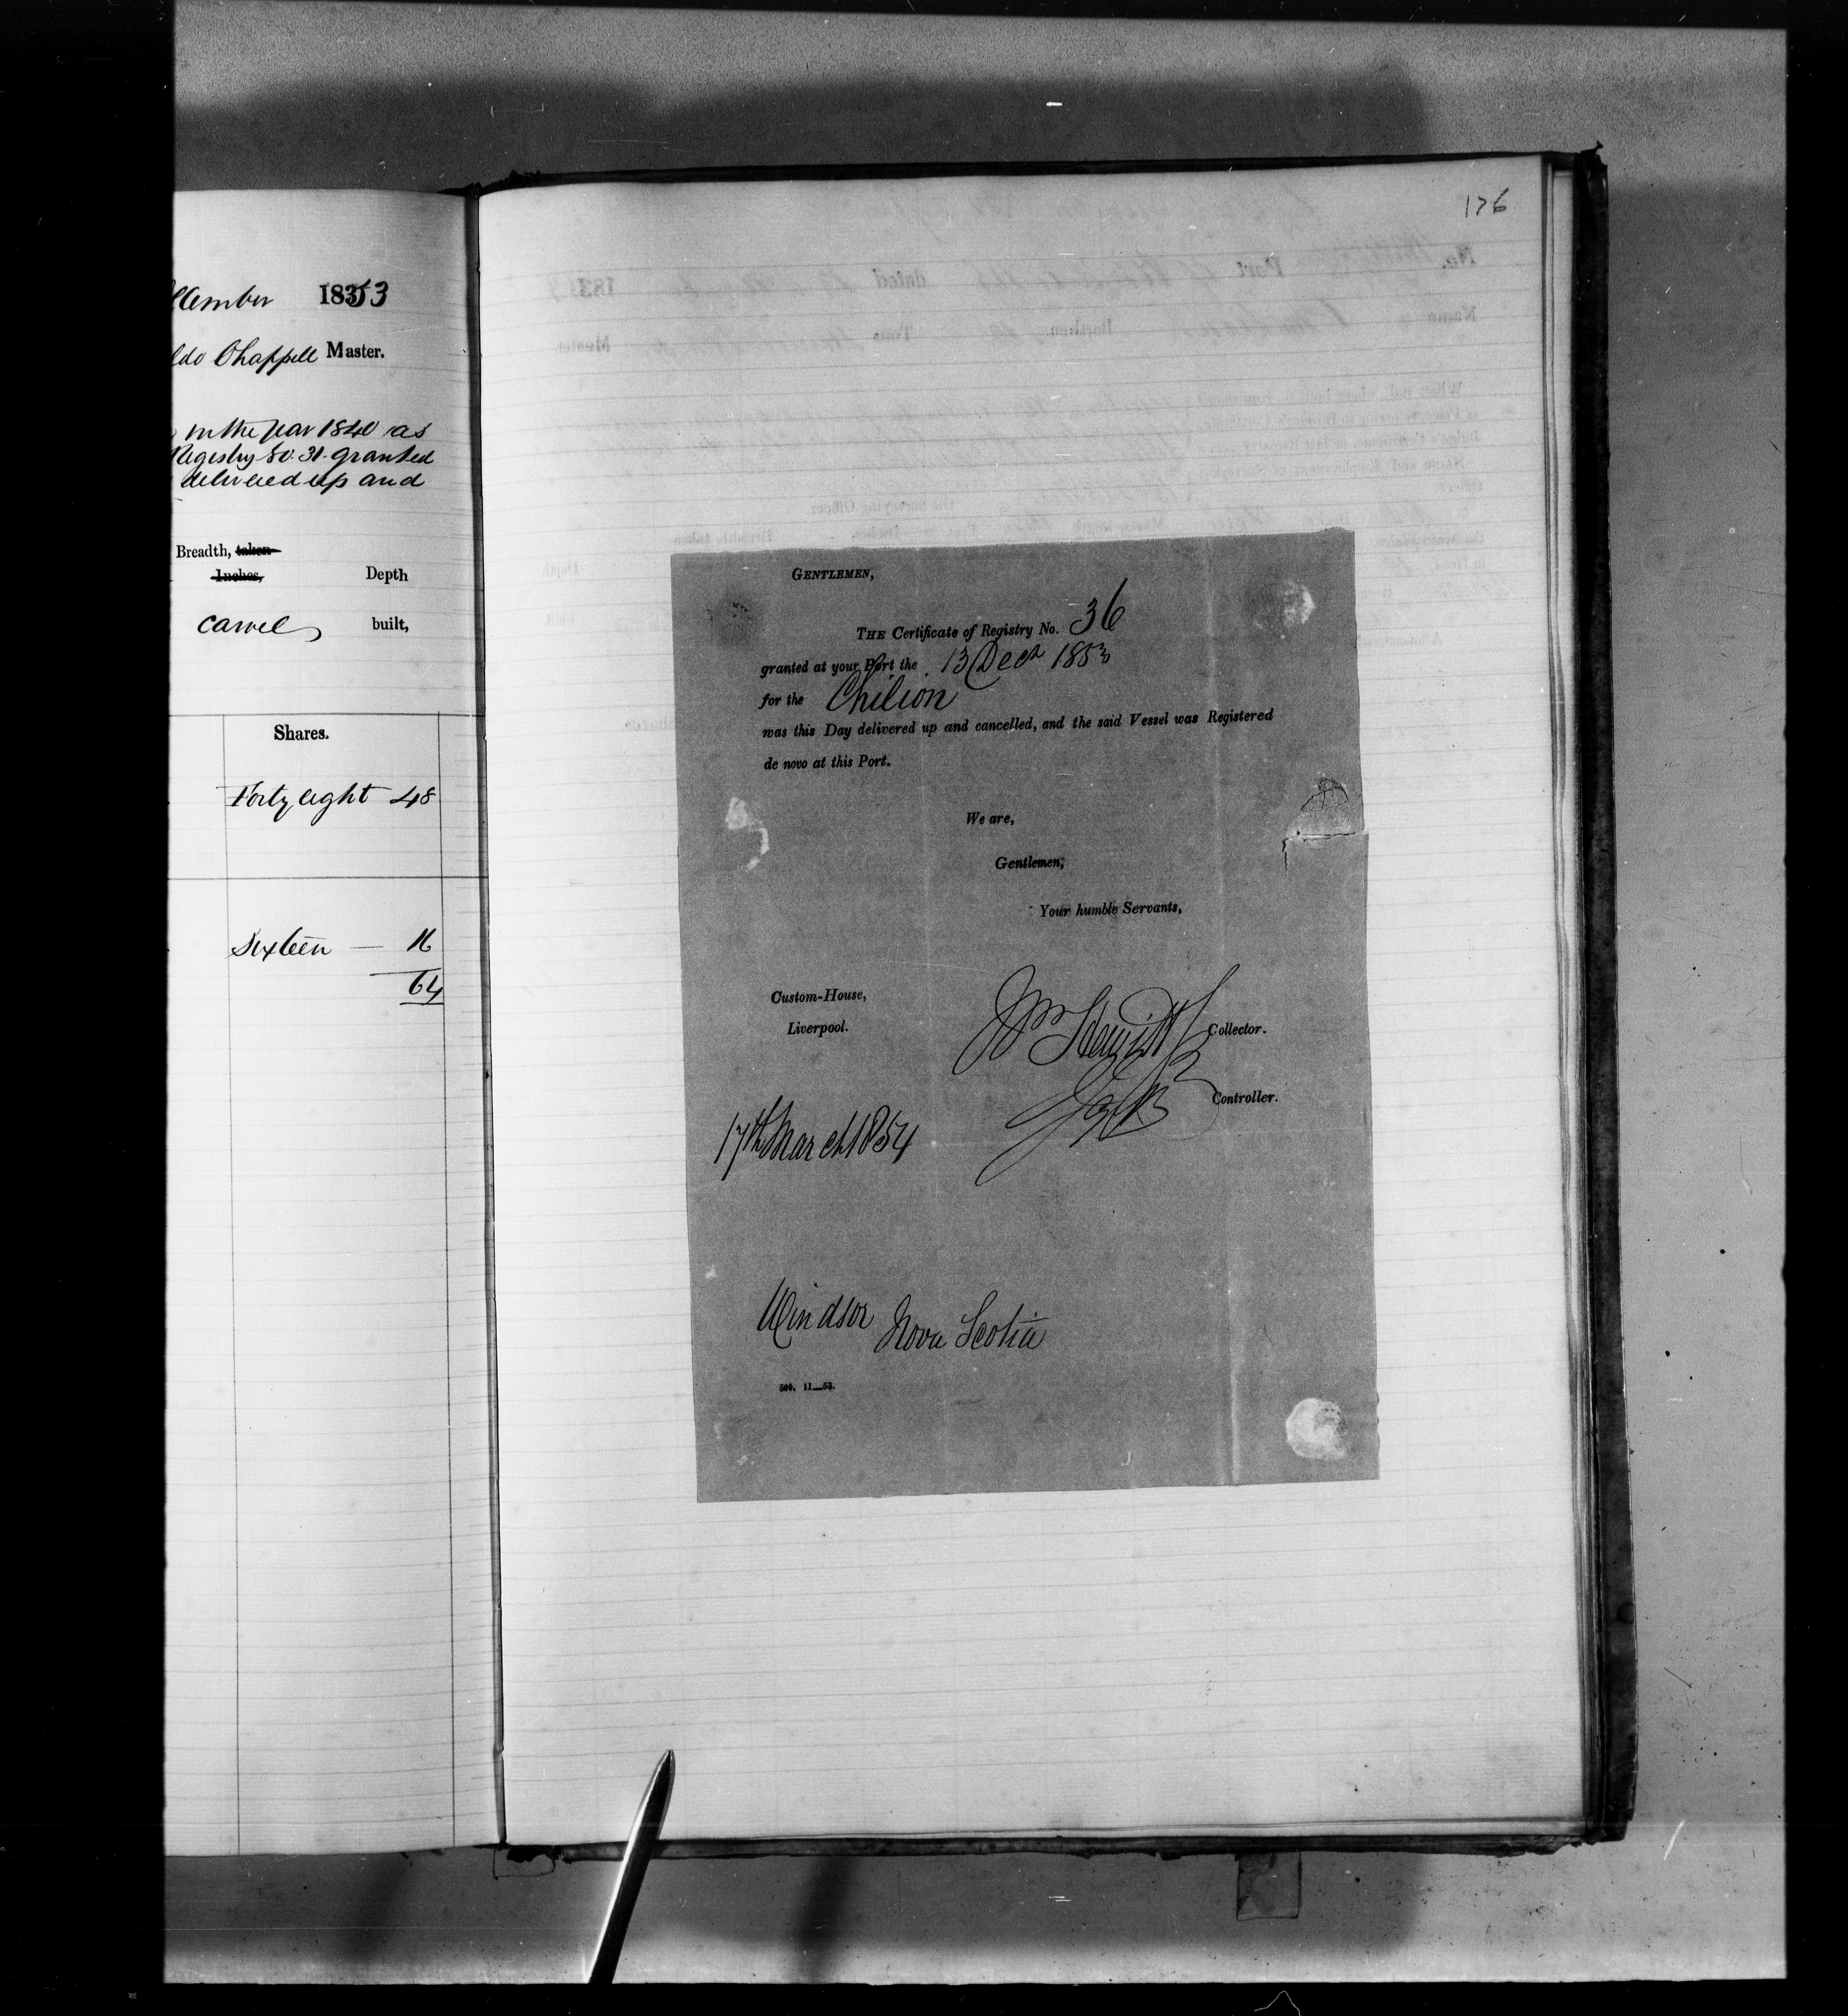 cember 1853
ldo Chappell Master.
in the year 1840 as
Registry No. 31 granted
delivered up and
Breadth, taken
Inches, Depth
Carvel built,
Shares.
Forty eight 48
Sixteen — 16
64
176
GENTLEMEN,
THE Certificate of Registry No. 36
granted at your Port the 13 Decr 1853
for the Chilion
was this Day delivered up and cancelled, and the said Vessel was Registered
de novo at this Port.
We are,
Gentlemen,
Your humble Servants,
Custom-House,
Liverpool.
Collector.
Controller.
17th March 1854
Windsor Nova Scotia
500. 11—53.